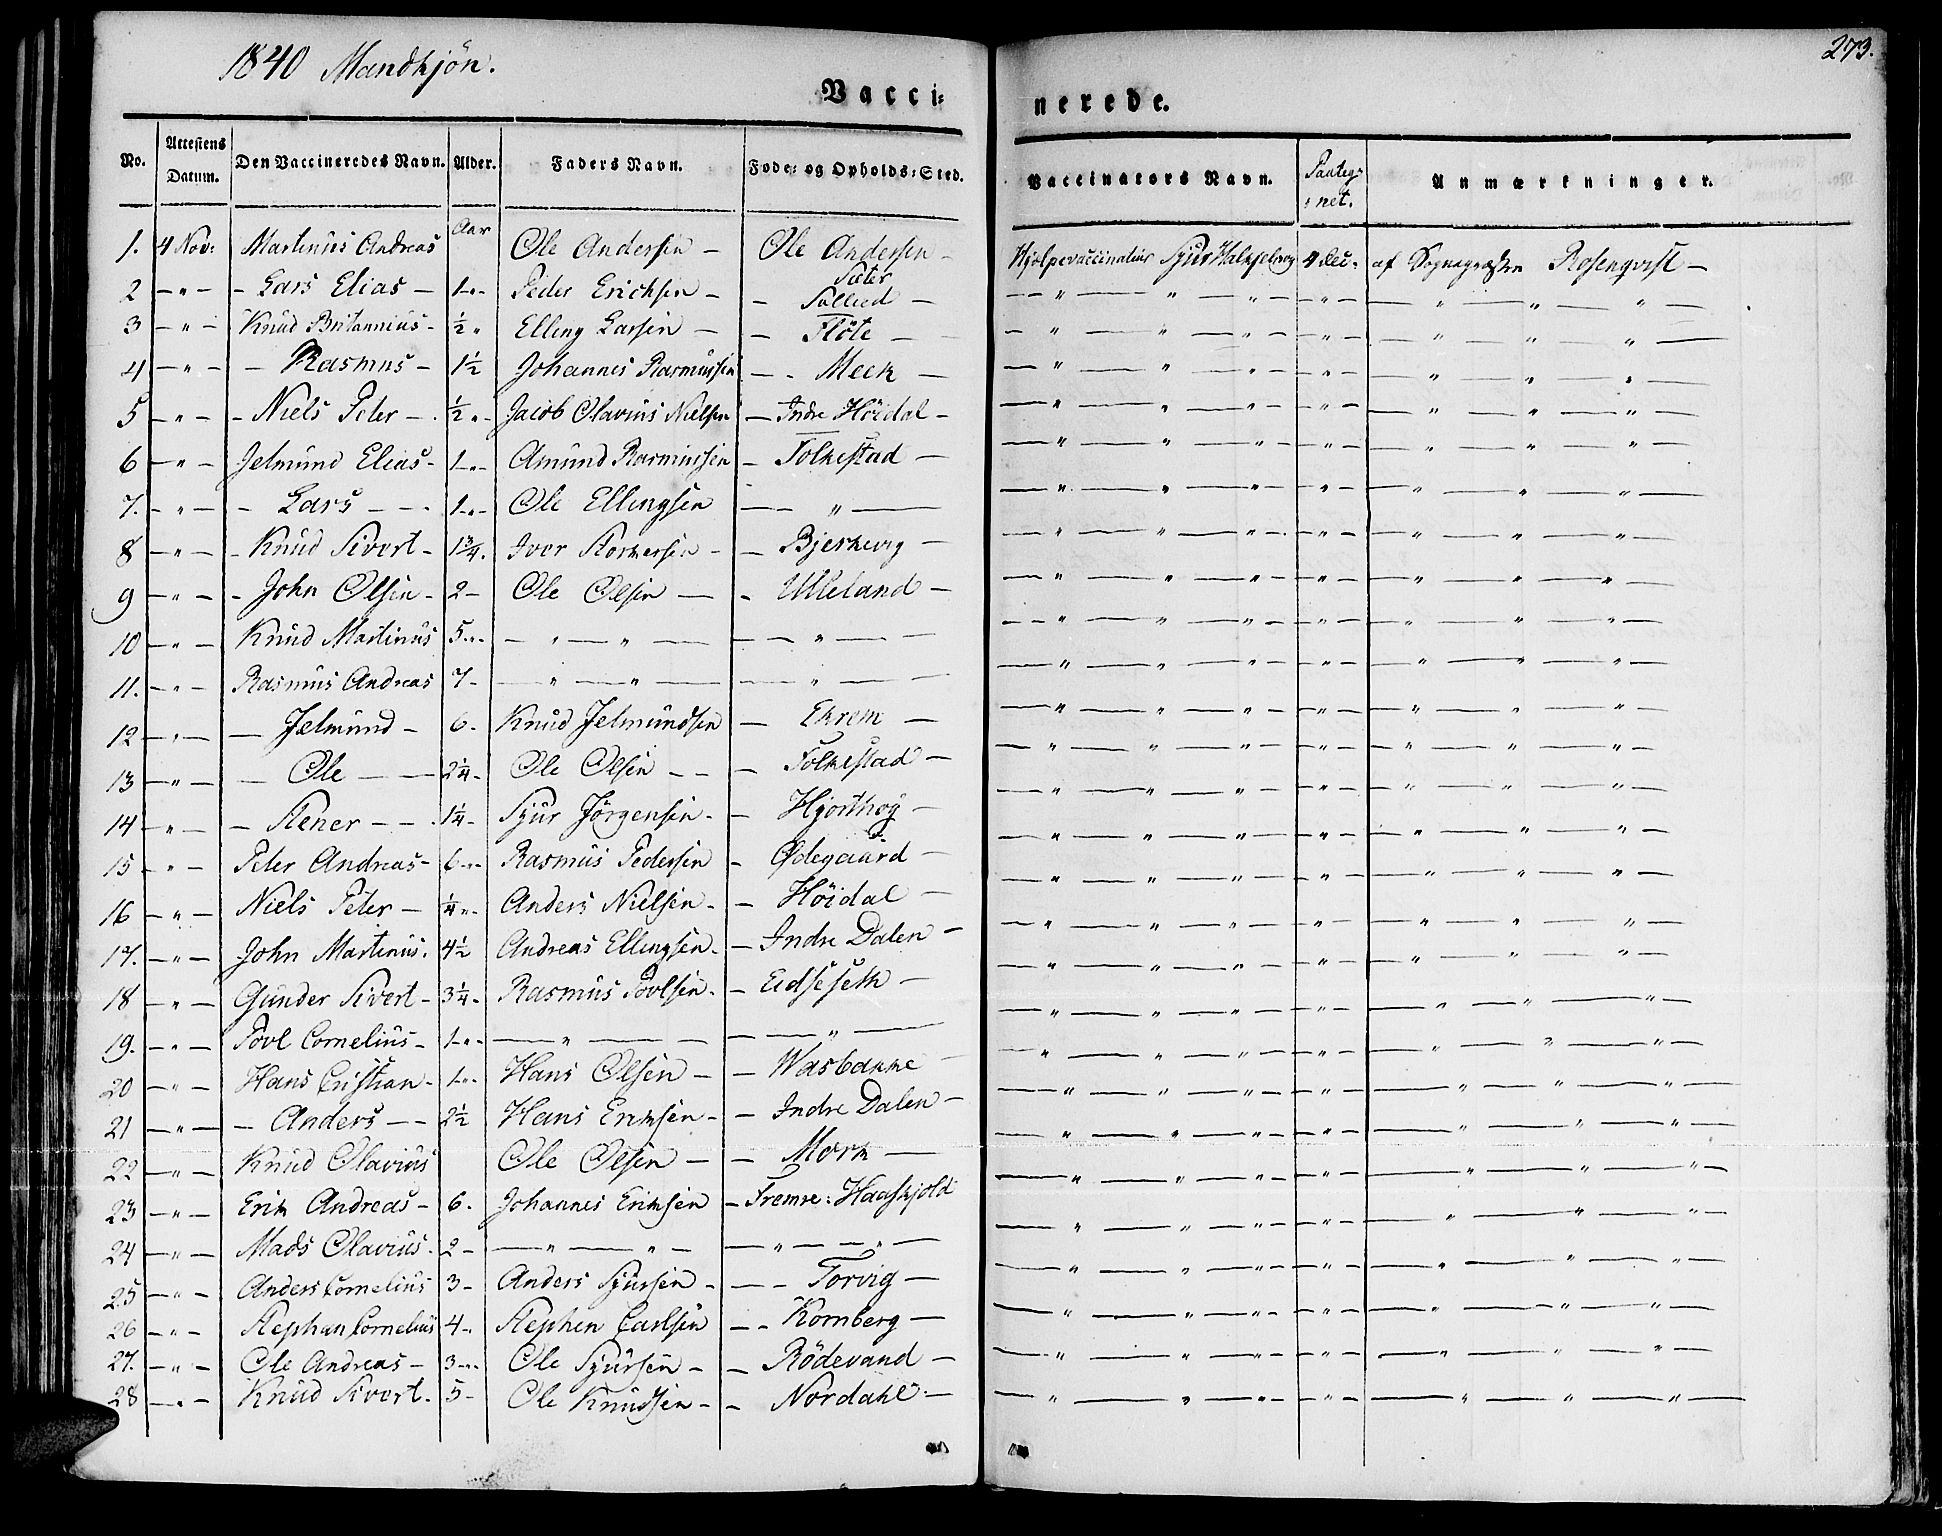 1840 Mandkjön.
273.
Vacci=
nerede.
No. Attestens Datum. Den Vaccineredes Navn. Alder. Faders Navn. Føde= og Opholds=Sted. Vaccinators Navn. Paateg= =net. Anmærkninger.
Aar
1. 4 Nov: Martinus Andreas Ole Andersen - Ole Andersen - Hjelpevaccinatiur Sjur 4 Dec: af Sognepræsten Rosenqvist -
Sæter
2 - " - - Lars Elias - 1-"- Peder Erichsen - - -
3 - " - Knud Britannius - ½ " Elling Larsen - - Flöte -
4 - " - - Rasmus - 1½ Johannes Rasmussen - - Meek -
5 - " - - Niels Peter - ½ "- Jacob Olavius Nielsen - Indre Höidal -
6 - " - Jelmund Elias - 1-"- Amund Rasmussen - Folkestad -
7. - " - - Lars - - 1-"- Ole Ellingsen - - " -
8 - " - - Knud Sivert - 1¾. Iver Storkersen - - Bjerkevig -
9 - " - - John Olsen - 2 - Ole Olsen - - Ulleland -
10 - " - Knud Martinus 5-"- - " - " - - - " -
11. - " - Rasmus Andreas 7 - - " - " - - - " -
12 - " - - Jelmund - 6 - Knud Jelmundsen - Ekrem -
13 - " - - Ole - - 2¼ - Ole Olsen - - - Folkestad -
14 - " - - Stener - - 1¼ - Sjur Jörgensen - - Hjorthoy -
15 - " - Peter Andreas - 6-"- Rasmus Pedersen - Ødegaard -
16 - " - Niels Peter - ¼ "- Anders Nielsen - - Höidal -
17. - " - John Martinus. 4½ Andreas Ellingsen - - Indre Dalen -
18 - " - Gunder Sivert - 3¼ - Rasmus Povlsen - - Eidseseth -
19. - " - Povl Cornelius - 1-"- - " - - - - " -
20 - " - Hans Cristian - 1-"- Hans Olsen - - Wasbakke -
21 - " - - Anders - - 2½ Hans Eriksen - - Indre Dalen -
22 - " - Knud Olavius Ole Olsen - - Mork -
23 - " - Erik Andreas - 6. Johannes Eriksen - Fremre: Haaskjold
24 - " - Mads Olavius. 2 - - " - " - - " - - " -
25 - " - Anders Cornelius 3 - Anders Sjursen - - - Torvig -
26 - " - Stephan Cornelius 4 -" Stephen Carlsen - - Kornberg -
27. - " - Ole Andreas - 3-"- Ole Sjursen - - Rödevand -
28 - " - Knud Sivert. 5 - Ole Knudsen - - Nordahl -